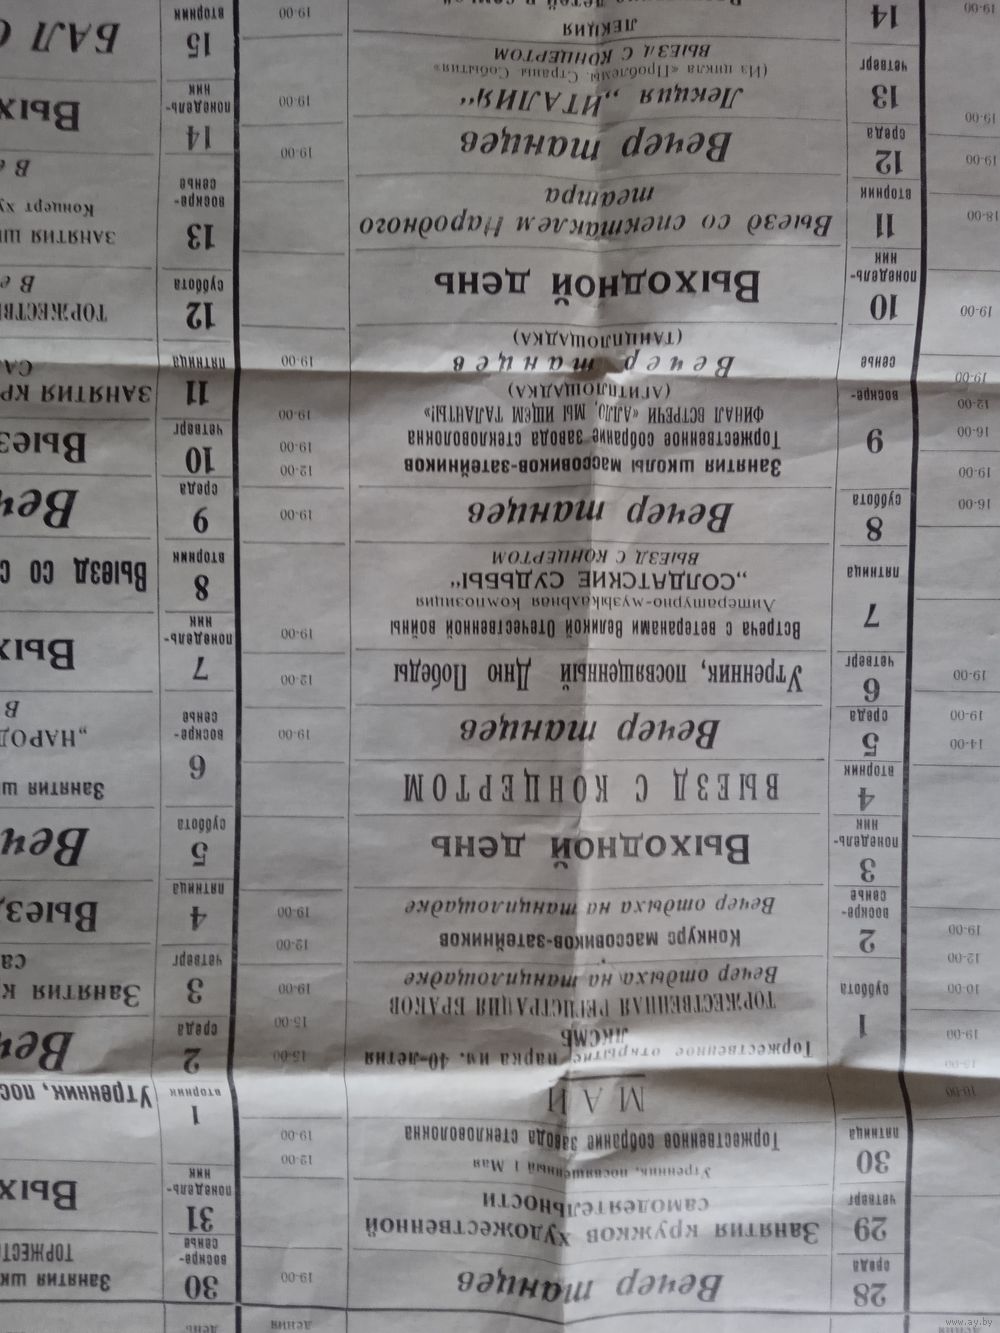 10-00
15-00
19-00
10-00
12-00
19-00
14-00
19-00
19-00
16-00
19-00
16-00
12-00
19-00
19-00
18-00
19-00
19-00
19-00
28 среда
Вечер танцев
19-00
29 четверг
Занятия кружков художественной
самодеятельности
30 пятница
Утренник, посвященный 1 Мая
12-00
Торжественное собрание завода стекловолокна
19-00
МАЙ
1 суббота
Торжественное открытие парка им. 40-летия
ЛКСМБ
15-00
ТОРЖЕСТВЕННАЯ РЕГИСТРАЦИЯ БРАКОВ
15-00
Вечер отдыха на танцплощадке
19-00
2 воскре-
сенье
Конкурс массовиков-затейников
12-00
Вечер отдыха на танцплощадке
19-00
3 понедель-
ник
Выходной день
4 вторник
ВЫЕЗД С КОНЦЕРТОМ
5 среда
Вечер танцев
19-00
6 четверг
Утренник, посвященный Дню Победы
12-00
7 пятница
Встреча с ветеранами Великой Отечественной войны
19-00
Литературно-музыкальная композиция
„СОЛДАТСКИЕ СУДЬБЫ"
ВЫЕЗД С КОНЦЕРТОМ
8 суббота
Вечер танцев
19-00
9 воскре-
сенье
Занятия школы массовиков-затейников
12-00
Торжественное собрание завода стекловолокна
19-00
ФИНАЛ ВСТРЕЧИ «АЛЛО, МЫ ИЩЕМ ТАЛАНТЫ!»
19-00
(АГИТПЛОЩАДКА)
Вечер танцев
19-00
(ТАНЦПЛОЩАДКА)
10 понедель-
ник
Выходной день
11 вторник
Выезд со спектаклем Народного
театра
12 среда
Вечер танцев
19-00
13 четверг
Лекция „ИТАЛИЯ"
19-00
(Из цикла «Проблемы. Страны. События»
ВЫЕЗД С КОНЦЕРТОМ
14
ЛЕКЦИЯ
19-00
день
30 воскре-
сенье
Занятия шк
ТОРЖЕСТ
31 понедель-
ник
Вых
1 вторник
Утренник, пос
2 среда
Веч
3 четверг
Занятия к
са
4 пятница
Выезд
5 суббота
Веч
6 воскре-
сенье
Занятия ш
„НАРОД
В
7 понедель-
ник
Вых
8 вторник
Выезд со с
9 среда
Веч
10 четверг
Выез
11 пятница
ЗАНЯТИЯ КР
СА
12 суббота
ТОРЖЕСТВЕ
В е
13 воскре-
сенье
ЗАНЯТИЯ Ш
Концерт ху
В е
14 понедель-
ник
Вых
15 вторник
БАЛ
www.ay.by